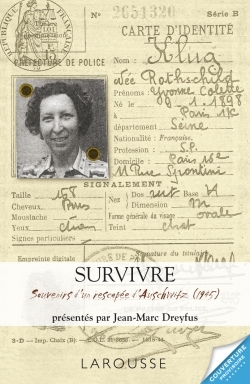 N° 2651320
Série B
CARTE D'IDENTITÉ
PRÉFECTURE DE POLICE
Nom : Klug
née Rothschild
Prénoms : Yvonne Colette
Né le 9.1.1898
à Paris
département Seine
Nationalité : Française.
Profession : S.P.
Domicile : Paris 16e
11 Rue Spontini
SIGNALEMENT
Taille 158
Dos
Base
Cheveux
Dimension M
Moustache
Forme générale du visage ovale
Yeux
Teint clair
Signes particuliers
Empreinte digitale
Signature du titulaire :
SURVIVRE
Souvenirs d'un rescapée d'Auschwitz (1945)
présentés par Jean-Marc Dreyfus
COUVERTURE
PROVISOIRE
LAROUSSE